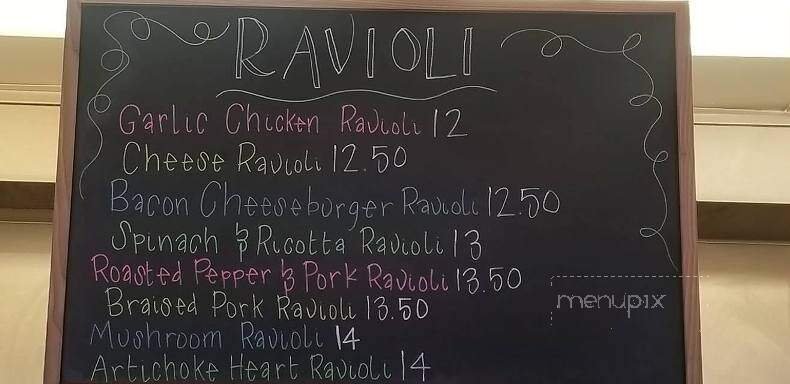 RAVIOLI
Garlic Chicken Ravioli 12
Cheese Ravioli 12.50
Bacon Cheeseburger Ravioli 12.50
Spinach & Ricotta Ravioli 13
Roasted Pepper & Pork Ravioli 13.50
Braised Pork Ravioli 13.50
Mushroom Ravioli 14
Artichoke Heart Ravioli 14
menupix